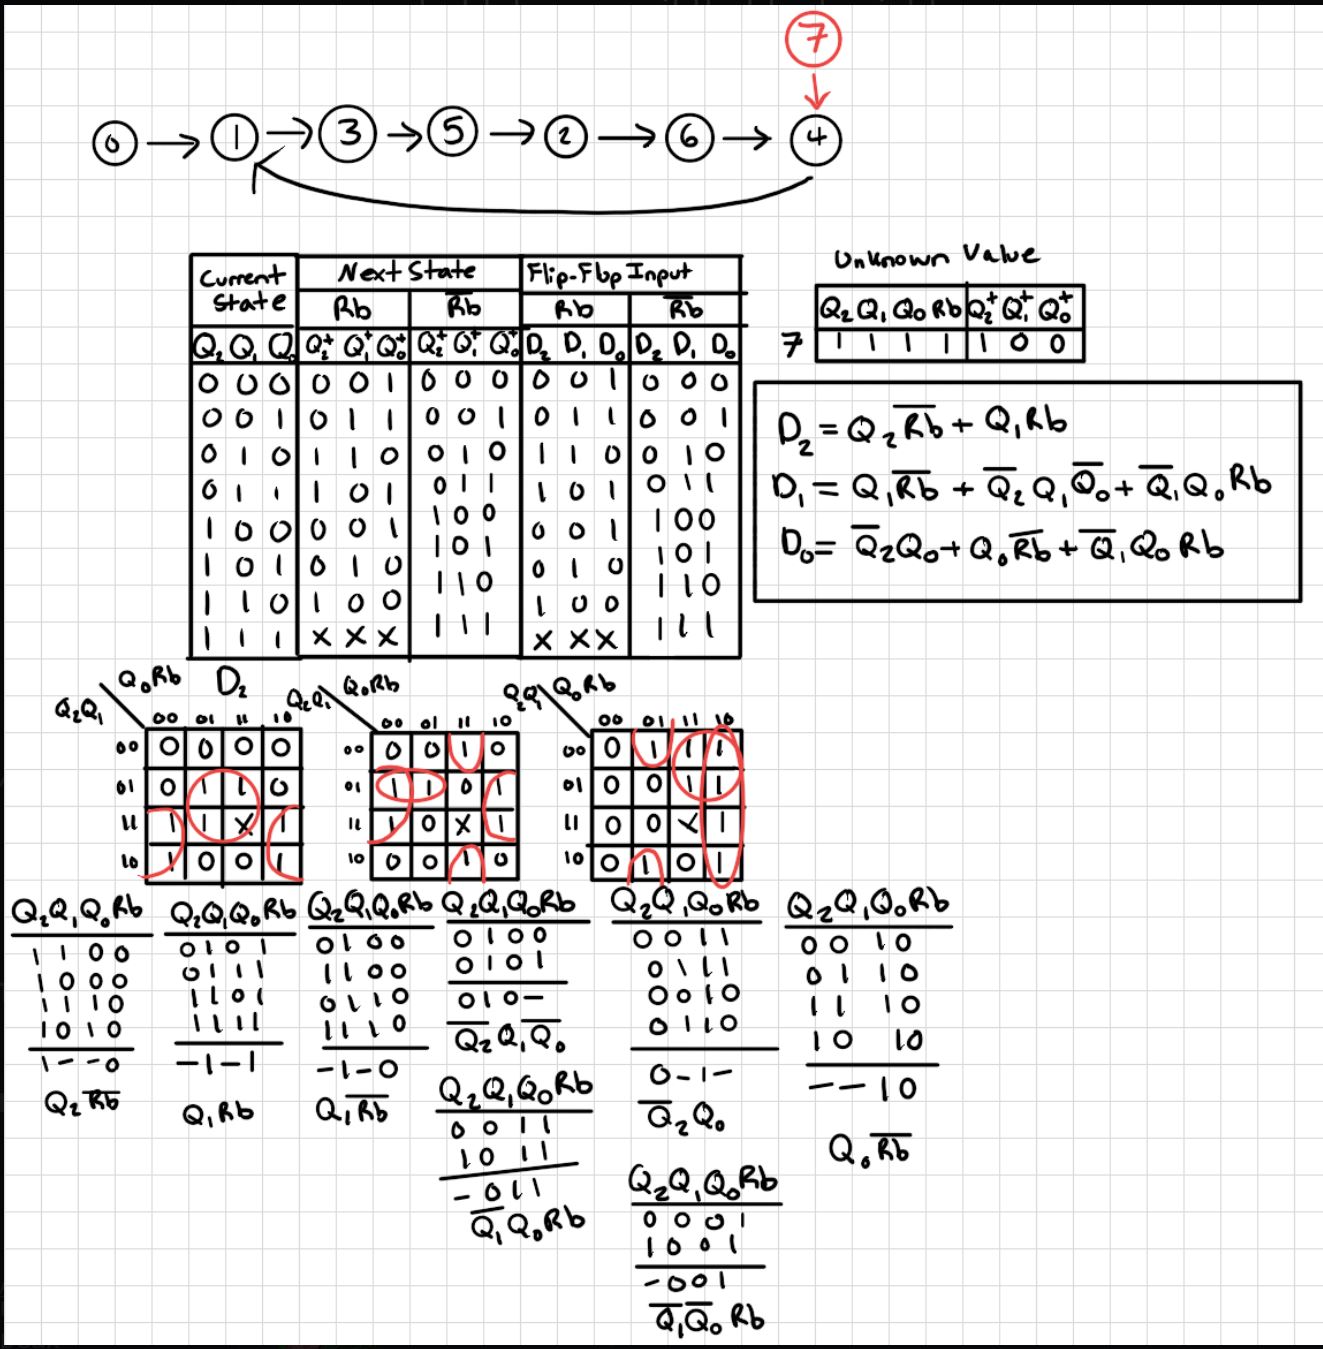 7
0 → 1 → 3 → 5 → 2 → 6 → 4
Current State | Next State | Flip-Flop Input
Rb | R̅b̅ | Rb | R̅b̅
Q₂ Q₁ Q₀ | Q₂⁺ Q₁⁺ Q₀⁺ | Q₂⁺ Q₁⁺ Q₀⁺ | D₂ D₁ D₀ | D₂ D₁ D₀
0 0 0 | 0 0 1 | 0 0 0 | 0 0 1 | 0 0 0
0 0 1 | 0 1 1 | 0 0 1 | 0 1 1 | 0 0 1
0 1 0 | 1 1 0 | 0 1 0 | 1 1 0 | 0 1 0
0 1 1 | 1 0 1 | 0 1 1 | 1 0 1 | 0 1 1
1 0 0 | 0 0 1 | 1 0 0 | 0 0 1 | 1 0 0
1 0 1 | 0 1 0 | 1 0 1 | 0 1 0 | 1 0 1
1 1 0 | 1 0 0 | 1 1 0 | 1 0 0 | 1 1 0
1 1 1 | X X X | 1 1 1 | X X X | 1 1 1
Unknown Value
Q₂ Q₁ Q₀ Rb | Q₂⁺ Q₁⁺ Q₀⁺
7 1 1 1 1 | 1 0 0
D₂ = Q₂R̅b̅ + Q₁Rb
D₁ = Q₁R̅b̅ + Q̅₂Q₁Q̅₀ + Q̅₁Q₀Rb
D₀ = Q̅₂Q₀ + Q₀R̅b̅ + Q̅₁Q₀Rb
Q₀Rb D₂
Q₂Q₁
00 01 11 10
00 0 0 0 0
01 0 1 1 0
11 1 1 X 1
10 1 0 0 1
Q₂Q₁ Q₀Rb
00 01 11 10
00 0 0 1 0
01 1 1 0 1
11 1 0 X 1
10 0 0 1 0
Q₂Q₁ Q₀Rb
00 01 11 10
00 0 1 1 1
01 0 0 1 1
11 0 0 X 1
10 0 1 0 1
Q₂Q₁Q₀Rb
1 1 0 0
1 0 0 0
1 1 1 0
1 0 1 0
1 - - 0
Q₂R̅b̅
Q₂Q₁Q₀Rb
0 1 0 1
0 1 1 1
1 1 0 1
1 1 1 1
- 1 - 1
Q₁Rb
Q₂Q₁Q₀Rb
0 1 0 0
1 1 0 0
0 1 1 0
1 1 1 0
- 1 - 0
Q₁R̅b̅
Q₂Q₁Q₀Rb
0 1 0 0
0 1 0 1
0 1 0 -
Q̅₂Q₁Q̅₀
Q₂Q₁Q₀Rb
0 0 1 1
1 0 1 1
- 0 1 1
Q̅₁Q₀Rb
Q₂Q₁Q₀Rb
0 0 1 1
0 1 1 1
0 0 1 0
0 1 1 0
0 - 1 -
Q̅₂Q₀
Q₂Q₁Q₀Rb
0 0 0 1
1 0 0 1
- 0 0 1
Q̅₁Q̅₀Rb
Q₂Q₁Q₀Rb
0 0 1 0
0 1 1 0
1 1 1 0
1 0 1 0
- - 1 0
Q₀R̅b̅